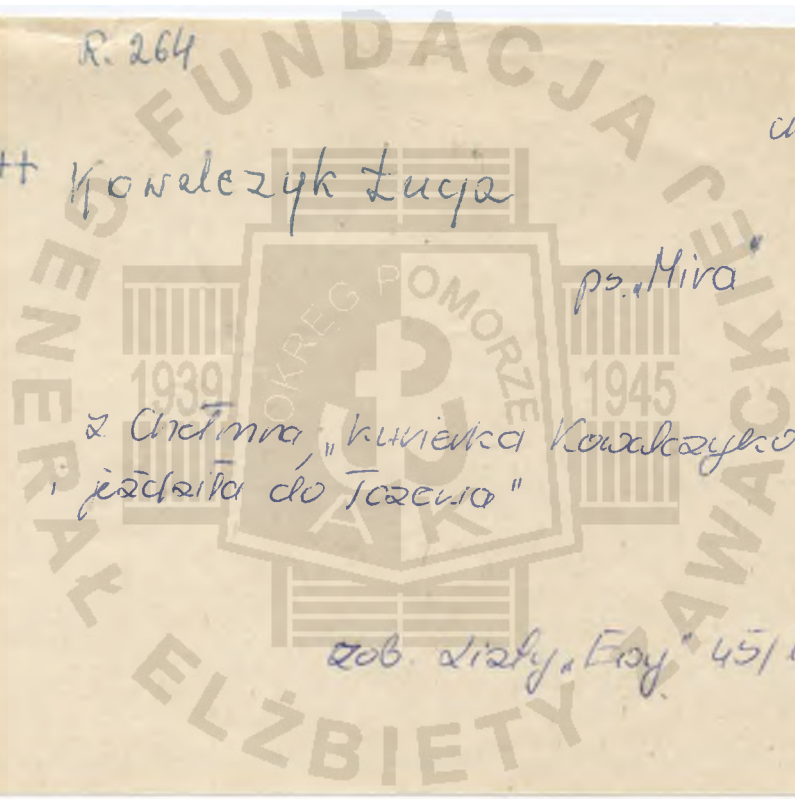 R. 264
++ Kowalczyk Łucja
ps. „Mira"
z Chełmna, „kurierka Kowalczyko
jeździła do Tczewa"
zob. Listy „Ewy" 45/
FUNDACJA GENERAŁ ELŻBIETY ZAWACKIEJ
OKRĘG POMORZE
1939 1945
AK